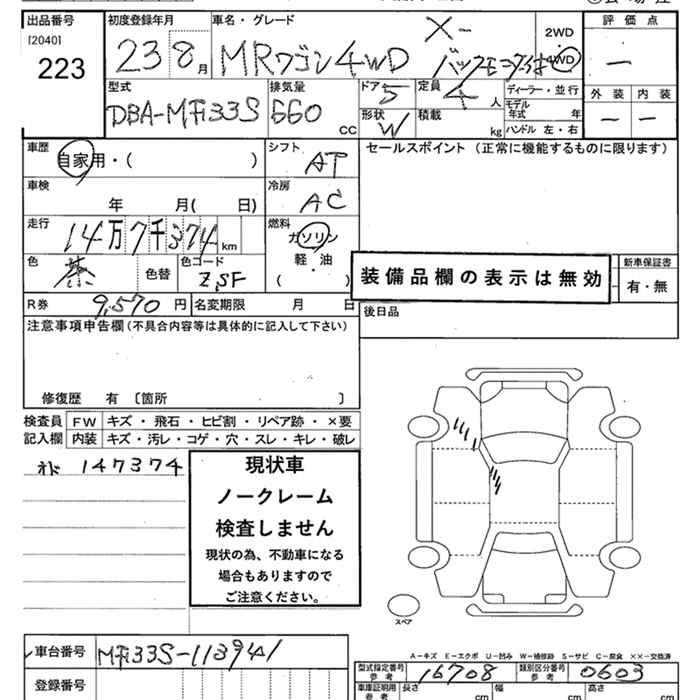 出品番号 初度登録年月 車名・グレード 2WD 評価点
[2040] 223 23 8月 MRワゴン 4WD 4WD ー
型式 排気量 ドア 5 定員 4人 ディーラー・並行 外装 内装
DBA-MF33S 660 CC 形状 W 積載 kg モデル年式 年 ー ー
ハンドル 左・右
車歴 自家用・( ) シフト AT セールスポイント (正常に機能するものに限ります)
車検 年 月( 日) 冷房 AC
走行 14万7千374km 燃料 ガソリン 軽・油 ( )
色 茶 色替 色コード ZSF 装備品欄の表示は無効 新車保証書 有・無
R券 9,570円 名変期限 月 日 後日品
注意事項申告欄(不具合内容等は具体的に記入して下さい)
修復歴 有 〔箇所 〕
検査員記入欄 FW キズ・飛石・ヒビ割・リペア跡・×要
内装 キズ・汚レ・コゲ・穴・スレ・キレ・破レ
147374
現状車
ノークレーム
検査しません
現状の為、不動車になる
場合もありますので
ご注意ください。
スペア
A-キズ E-エクボ U-凹み W-補修跡 S-サビ C-腐食 ××-交換済
車台番号 MF33S-113941 型式指定番号 参考 16708 類別区分番号 参考 0603
登録番号 車庫証明用 参考 長さ cm 幅 cm 高さ cm